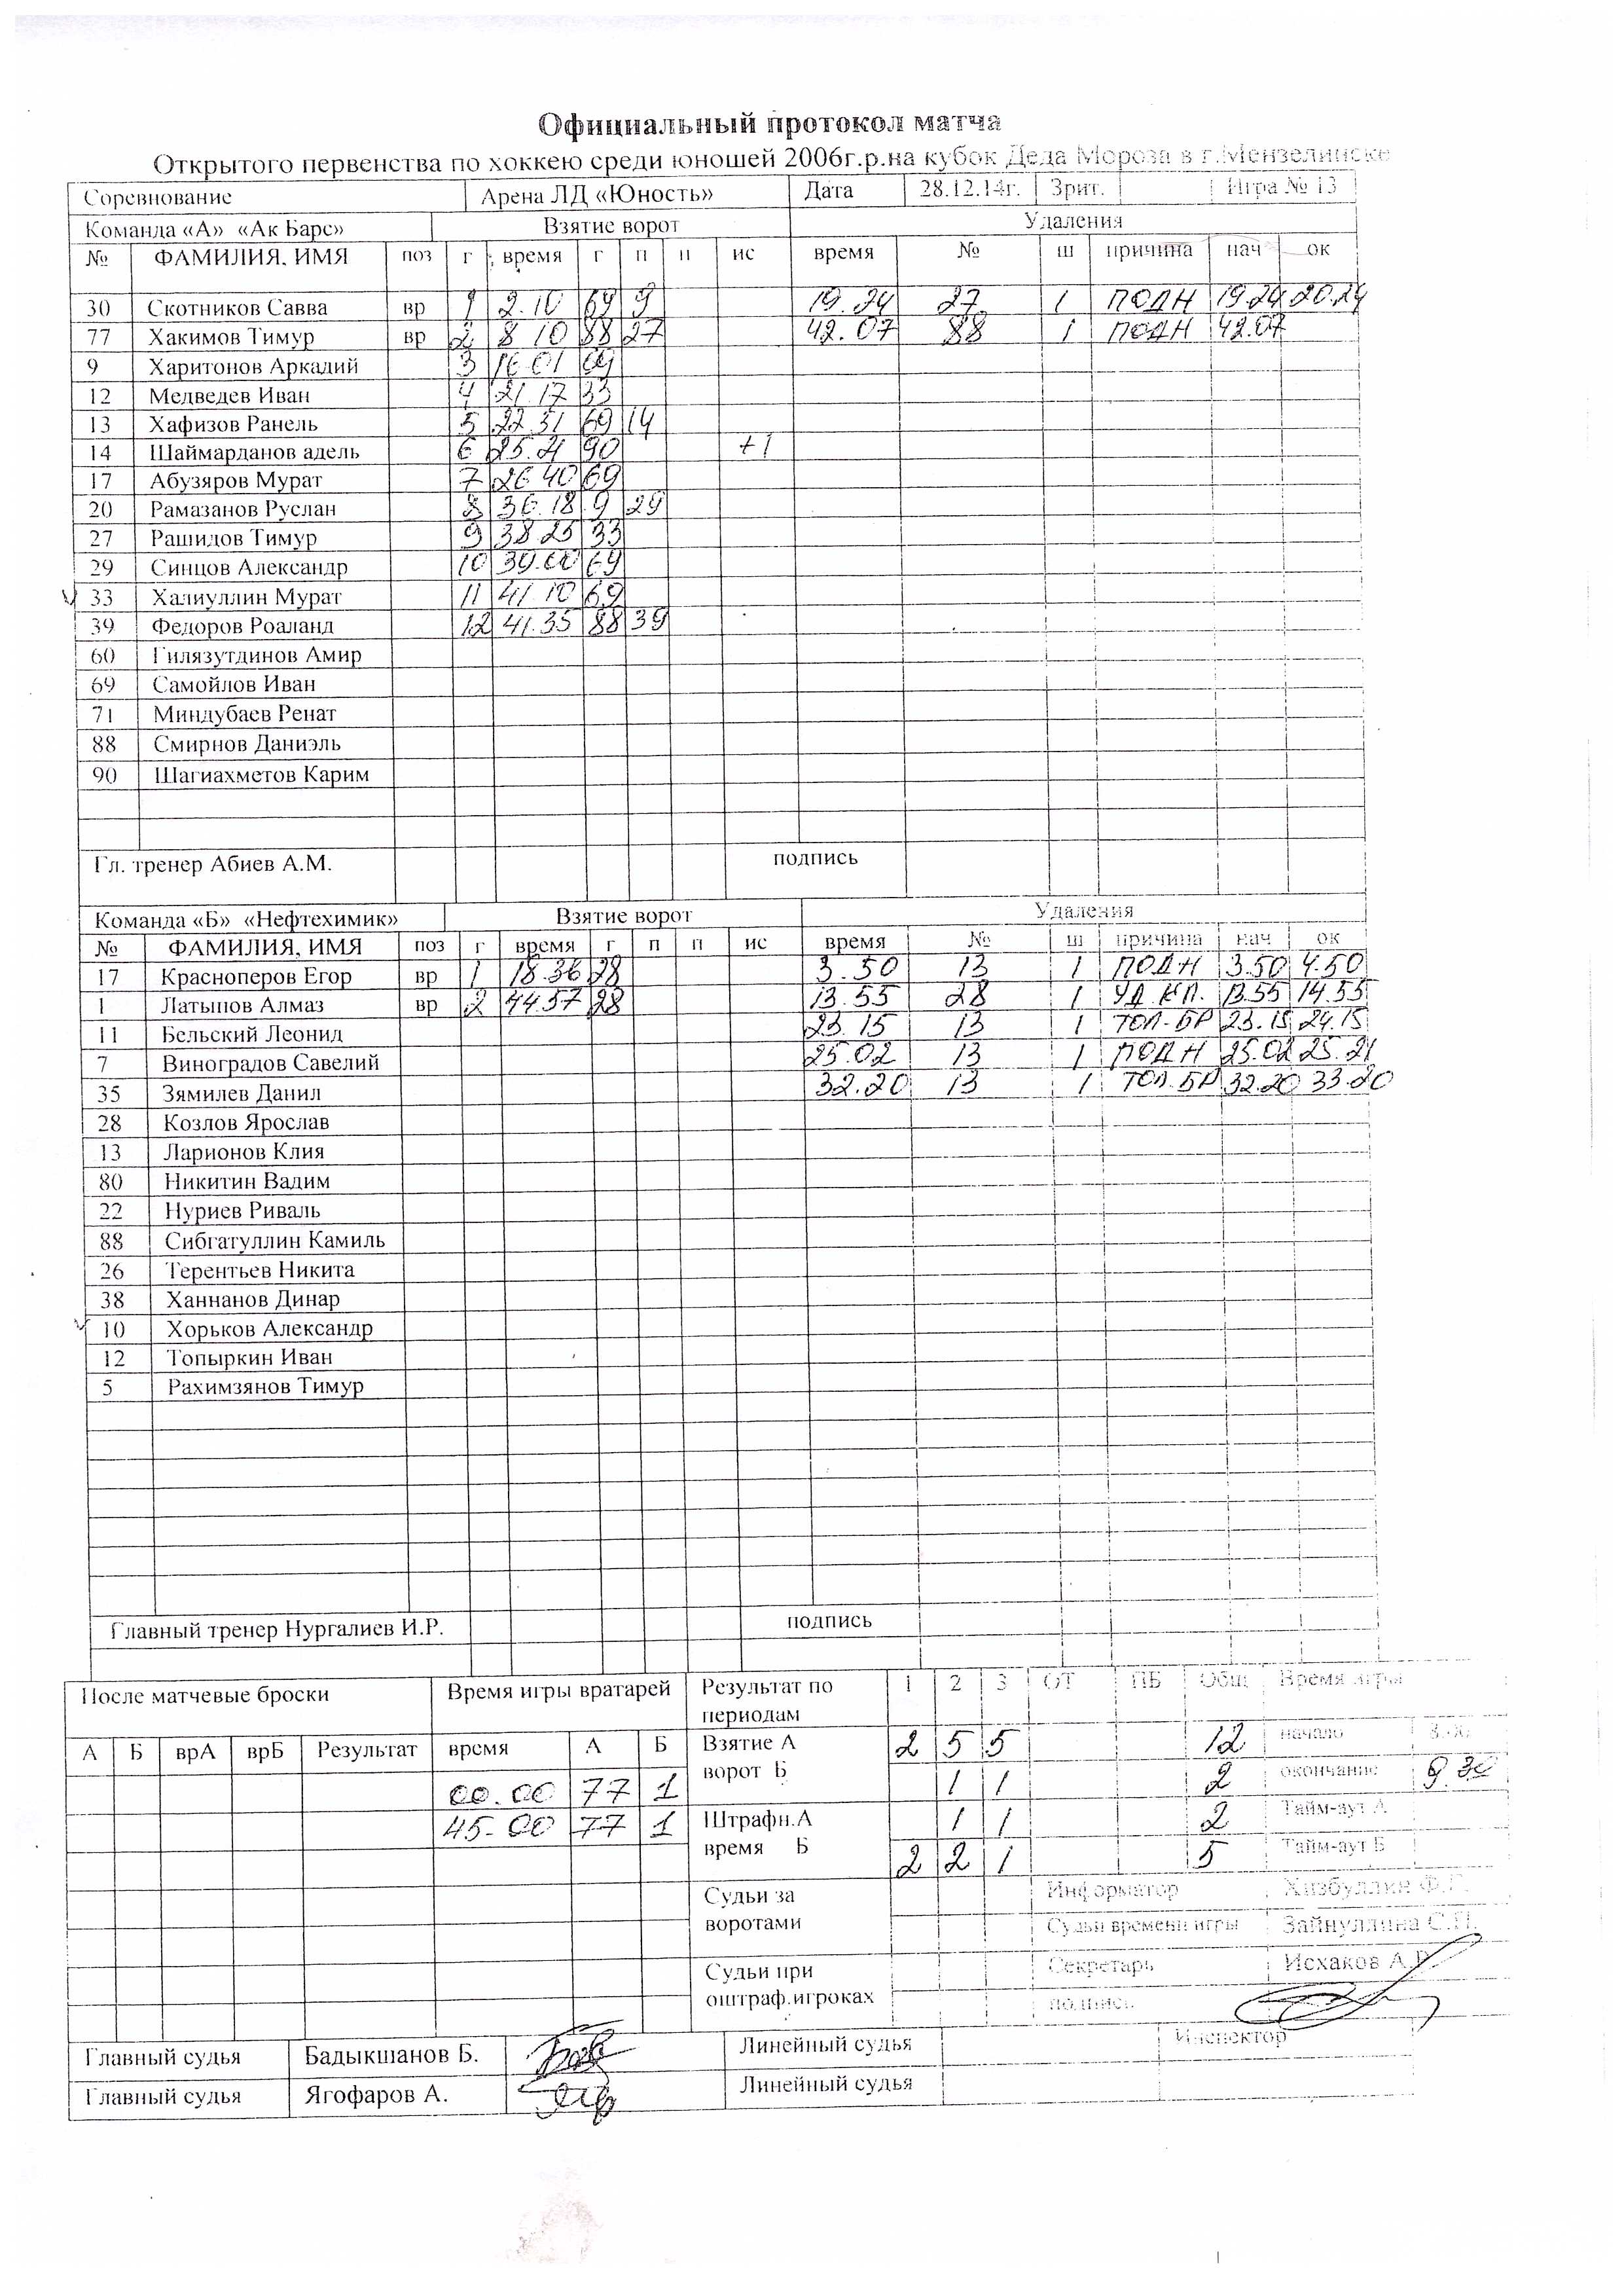 Официальный протокол матча
Открытого первенства по хоккею среди юношей 2006г.р.на кубок Деда Мороза в г.Мензелинске
Соревнование Арена ЛД «Юность» Дата 28.12.14г. Зрит. Игра № 13
Команда «А» «Ак Барс» Взятие ворот Удаления
№ ФАМИЛИЯ, ИМЯ поз г время г п п ис время № ш причина нач ок
30 Скотников Савва вр 1 2.10 69 9 19.24 27 1 ПОДН 19.24 20.24
77 Хакимов Тимур вр 2 8 10 88 27 42.07 88 1 ПОДН 42.07
9 Харитонов Аркадий 3 16.01 69
12 Медведев Иван 4 21.17 33
13 Хафизов Ранель 5 22.51 69 14
14 Шаймарданов адель 6 25.21 90 +1
17 Абузяров Мурат 7 26 40 69
20 Рамазанов Руслан 8 36.18 9 29
27 Рашидов Тимур 9 38 25 33
29 Синцов Александр 10 39.00 69
33 Халиуллин Мурат 11 41.10 69
39 Федоров Роаланд 12 41.35 88 39
60 Гилязутдинов Амир
69 Самойлов Иван
71 Миндубаев Ренат
88 Смирнов Даниэль
90 Шагиахметов Карим
Гл. тренер Абиев А.М. подпись
Команда «Б» «Нефтехимик» Взятие ворот Удаления
№ ФАМИЛИЯ, ИМЯ поз г время г п п ис время № ш причина нач ок
17 Красноперов Егор вр 1 18.36 28 3.50 13 1 ПОДН 3.50 4.50
1 Латыпов Алмаз вр 2 44.57 28 13.55 28 1 УД. КЛ. 13.55 14.55
11 Бельский Леонид 23.15 13 1 ТОЛ-БР 23.15 24.15
7 Виноградов Савелий 25.02 13 1 ПОДН 25.02 25.21
35 Зямилев Данил 32.20 13 1 ТОЛ.БР 32.20 33.20
28 Козлов Ярослав
13 Ларионов Клия
80 Никитин Вадим
22 Нуриев Риваль
88 Сибгатуллин Камиль
26 Терентьев Никита
38 Ханнанов Динар
10 Хорьков Александр
12 Топыркин Иван
5 Рахимзянов Тимур
Главный тренер Нургалиев И.Р. подпись
После матчевые броски Время игры вратарей Результат по периодам 1 2 3 ОТ ПБ Общ Время игры
А Б врА врБ Результат время А Б Взятие А 2 5 5 12 начало
00.00 77 1 ворот Б 1 1 2 окончание 9.30
45-00 77 1 Штрафн.А 1 1 2 Тайм-аут А
время Б 2 2 1 5 Тайм-аут Б
Судьи за воротами Информатор Хизбуллин Ф.Г.
Судьи времени игры Зайнуллина С.П.
Судьи при Секретарь Исхаков А.Р.
оштраф.игроках подпись
Главный судья Бадыкшанов Б. Линейный судья Инспектор
Главный судья Ягофаров А. Линейный судья